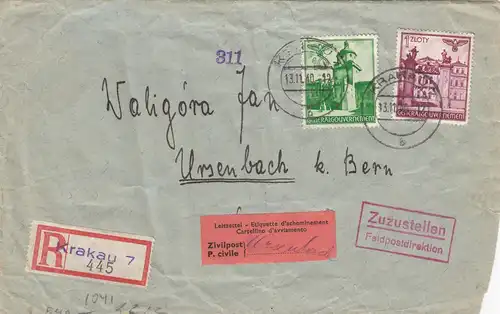 311
KRAKAU
13.11.40-12
b
1 ZŁOTY
GENERALGOUVERNEMENT
GENERALGOUVERNEMENT
KRAKAU
b
Waligóra Jan
Ursenbach k. Bern
Leitzettel - Etiquette d'acheminement
Cartellino d'avviamento
Zivilpost
P. civile
Ursenbach
Zuzustellen
Feldpostdirektion
R
Krakau 7
445
1041